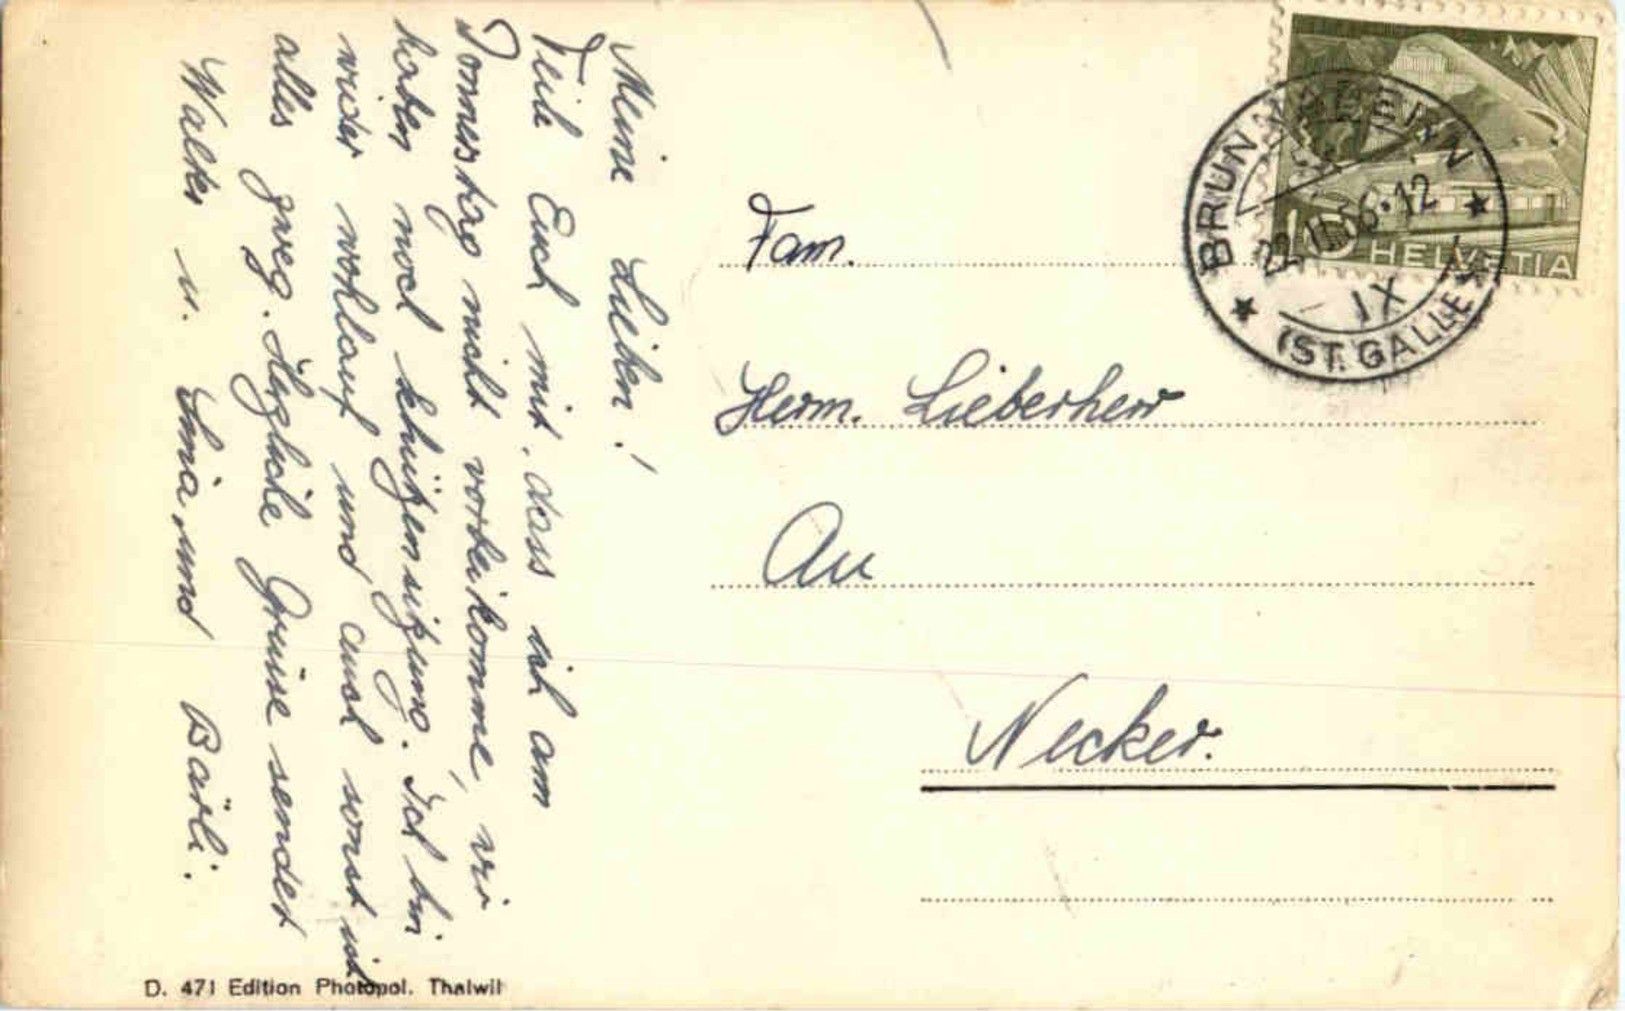 Meine Lieben!
Teile Euch mit, dass ich am
Donnerstag nicht vorbeikomme, wir
haben noch schützensitzung. Ich bin
wider wohlauf und auch sonst ist
alles zweg. Herzliche Grüsse sendet
Walter u. Lina und Bärli.
Fam.
Herm. Lieberherr
Au
Necker.
BRUNNADERN
22. 56-12
IX
(ST. GALLEN)
10 HELVETIA
D. 471 Edition Photopol. Thalwil